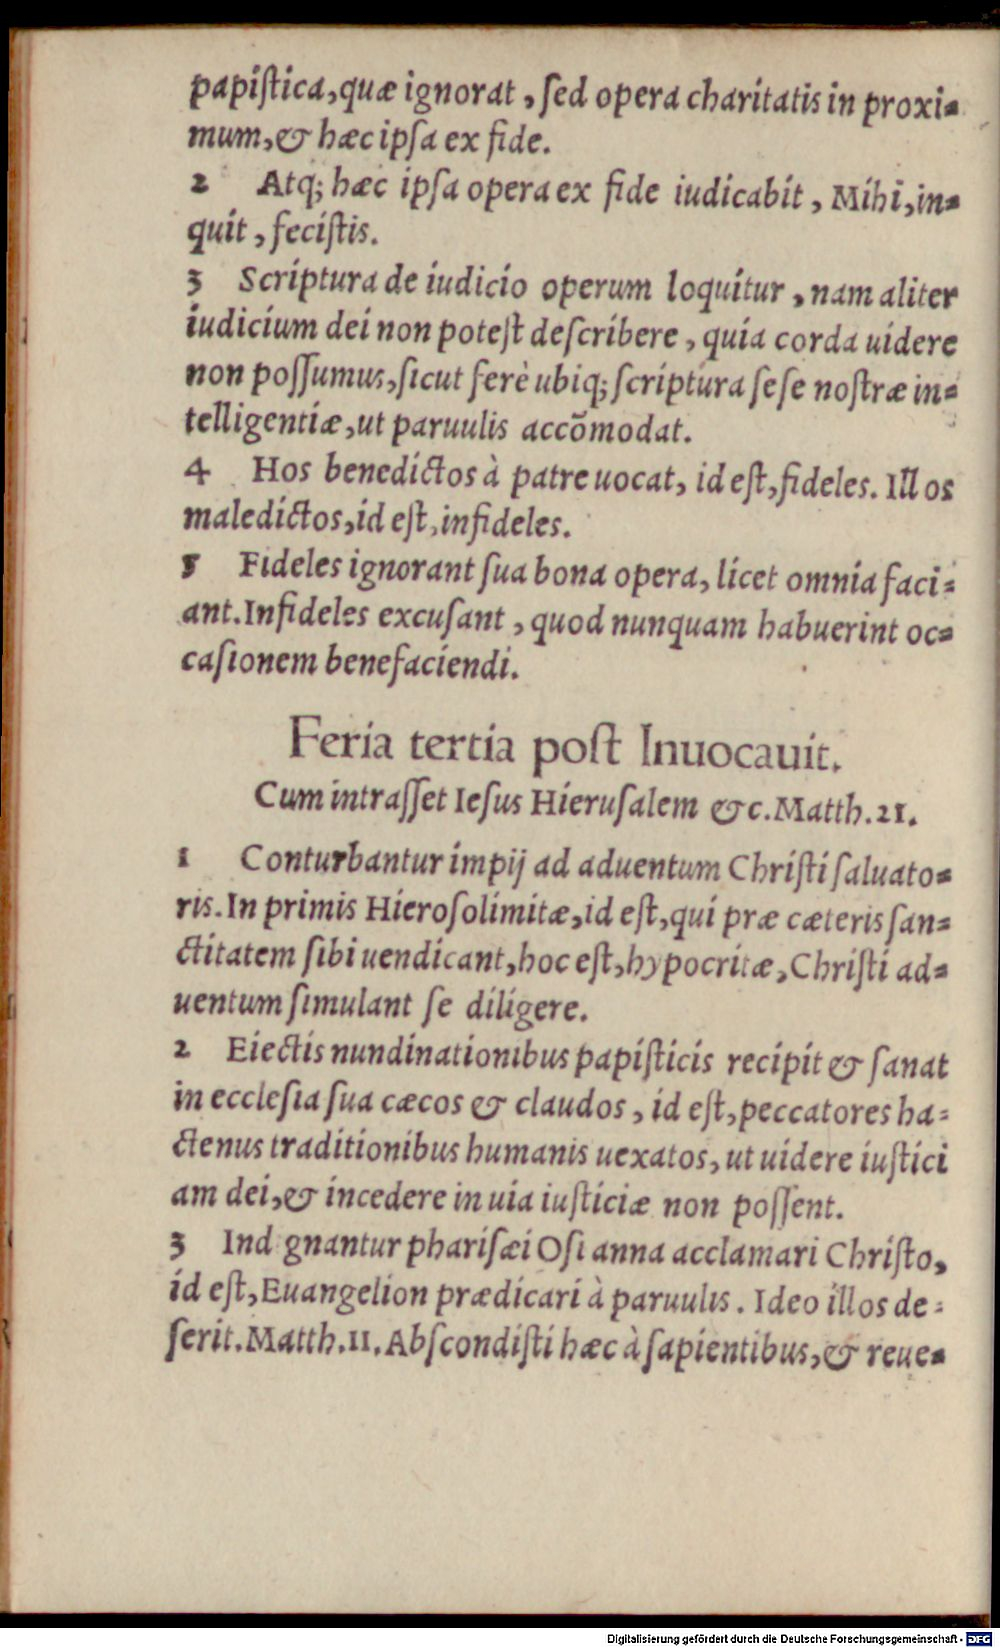 papiſtica, quæ ignorat, ſed opera charitatis in proxi-
mum, & hæc ipſa ex fide.
2 Atq; hæc ipſa opera ex fide iudicabit, Mihi, in-
quit, feciſtis.
3 Scriptura de iudicio operum loquitur, nam aliter
iudicium dei non poteſt deſcribere, quia corda uidere
non poſſumus, ſicut ferè ubiq; ſcriptura ſeſe noſtræ in-
telligentiæ, ut paruulis accõmodat.
4 Hos benedictos à patre uocat, id eſt, fideles. Illos
maledictos, id eſt, infideles.
5 Fideles ignorant ſua bona opera, licet omnia faci-
ant. Infideles excuſant, quod nunquam habuerint oc-
caſionem benefaciendi.
Feria tertia poſt Inuocauit.
Cum intraſſet Ieſus Hieruſalem &c. Matth. 21.
1 Conturbantur impij ad aduentum Chriſti ſaluato-
ris. In primis Hieroſolimitæ, id eſt, qui præ cæteris ſan-
ctitatem ſibi uendicant, hoc eſt, hypocritæ, Chriſti ad-
uentum ſimulant ſe diligere.
2 Eiectis nundinationibus papiſticis recipit & ſanat
in eccleſia ſua cæcos & claudos, id eſt, peccatores ha-
ctenus traditionibus humanis uexatos, ut uidere iuſtici
am dei, & incedere in uia iuſticiæ non poſſent.
3 Ind gnantur phariſæi Oſi anna acclamari Chriſto,
id eſt, Euangelion prædicari à paruulis. Ideo illos de-
ſerit. Matth. 11. Abſcondiſti hæc à ſapientibus, & reue-
Digitalisierung gefördert durch die Deutsche Forschungsgemeinschaft - DFG